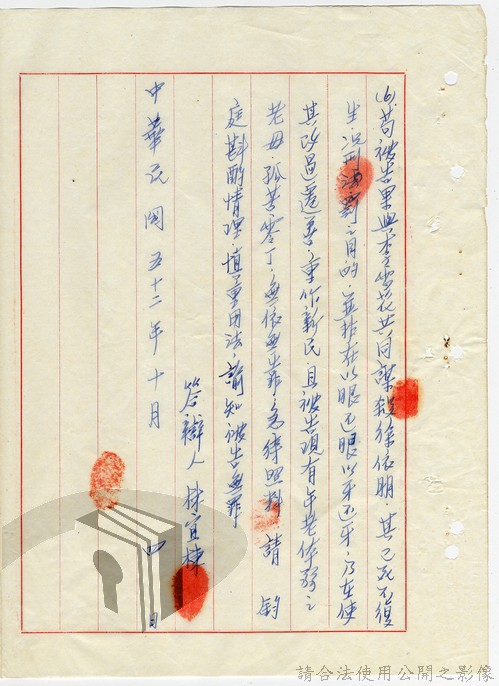 (6)苟被告果與李雪花共同謀殺徐依朋，其已死不復
生，况刑法罰之目的，並非在以眼还眼以牙还牙，乃在使
其改過遷善，重作新民，且被告現有年老体弱之
老母，孤苦零丁，無依無靠，急待照料，請 鈞
庭斟酌情理，慎重用法，諭知被告無罪
答辯人 林宜棟
中華民國五十二年十月 四 日
請合法使用公開之影像